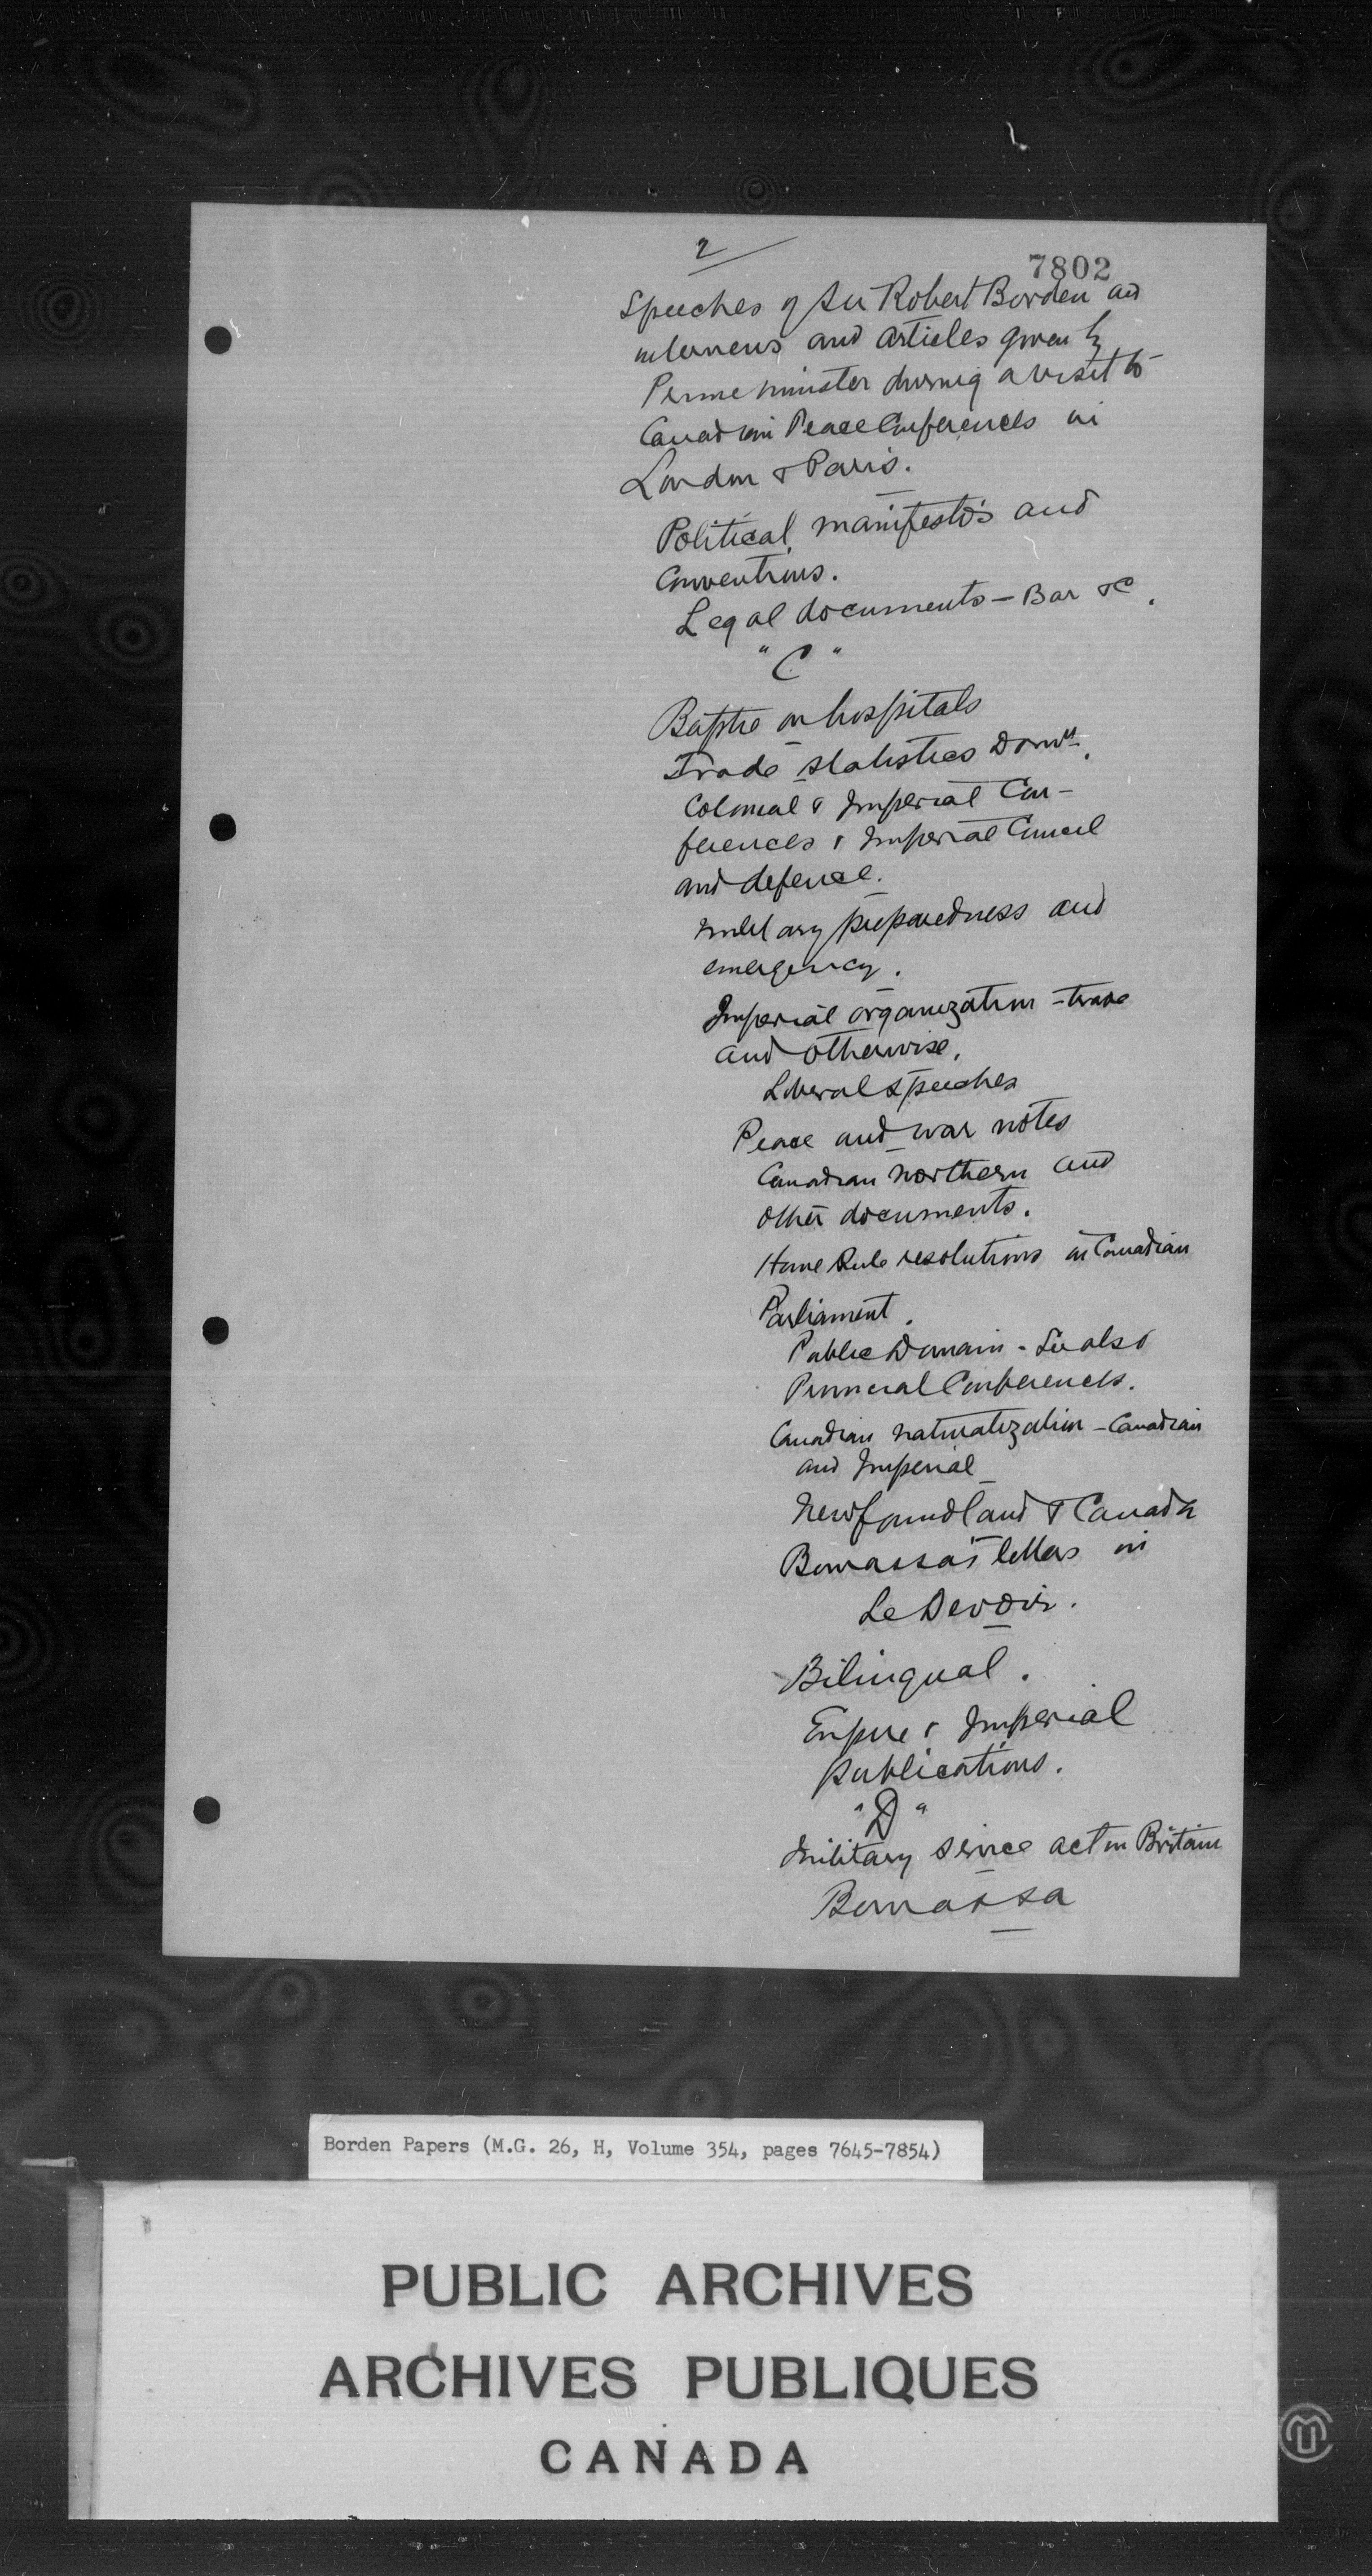 2
7802
Speeches of Sir Robert Borden and
interviews and articles given by
Prime minister during a visit to
Canadian Peace Conferences in
London & Paris.
Political manifesto's and
Conventions.
Legal documents - Bar &c.
"C"
on hospitals
Trade statistics Domn.
Colonial & Imperial Con-
ferences & Imperial Council
and defence.
Military preparedness and
emergency.
Imperial organization - trade
and otherwise.
Liberal speeches
Peace and war notes
Canadian Northern and
other documents.
Home Rule resolutions in Canadian
Parliament.
Public Domain - See also
Provincial Conferences.
Canadian naturalization - Canadian
and Imperial
Newfoundland & Canada
Bourassa's letters in
Le Devoir.
Bilingual.
Empire & Imperial
publications.
"D"
Military service act in Britain
Bourassa
Borden Papers (M.G. 26, H, Volume 354, pages 7645-7854)
PUBLIC ARCHIVES
ARCHIVES PUBLIQUES
CANADA